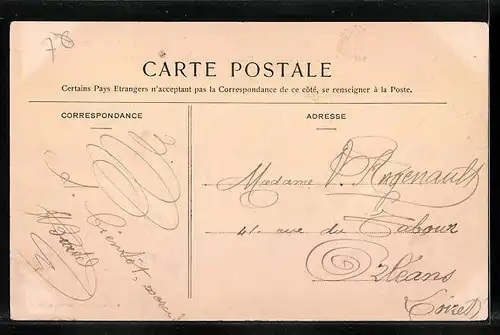 78
CARTE POSTALE
Certains Pays Etrangers n'acceptant pas la Correspondance de ce côté, se renseigner à la Poste.
CORRESPONDANCE
A Bientôt,
ADRESSE
Madame
41 rue du Tabour
Orléans
Loiret